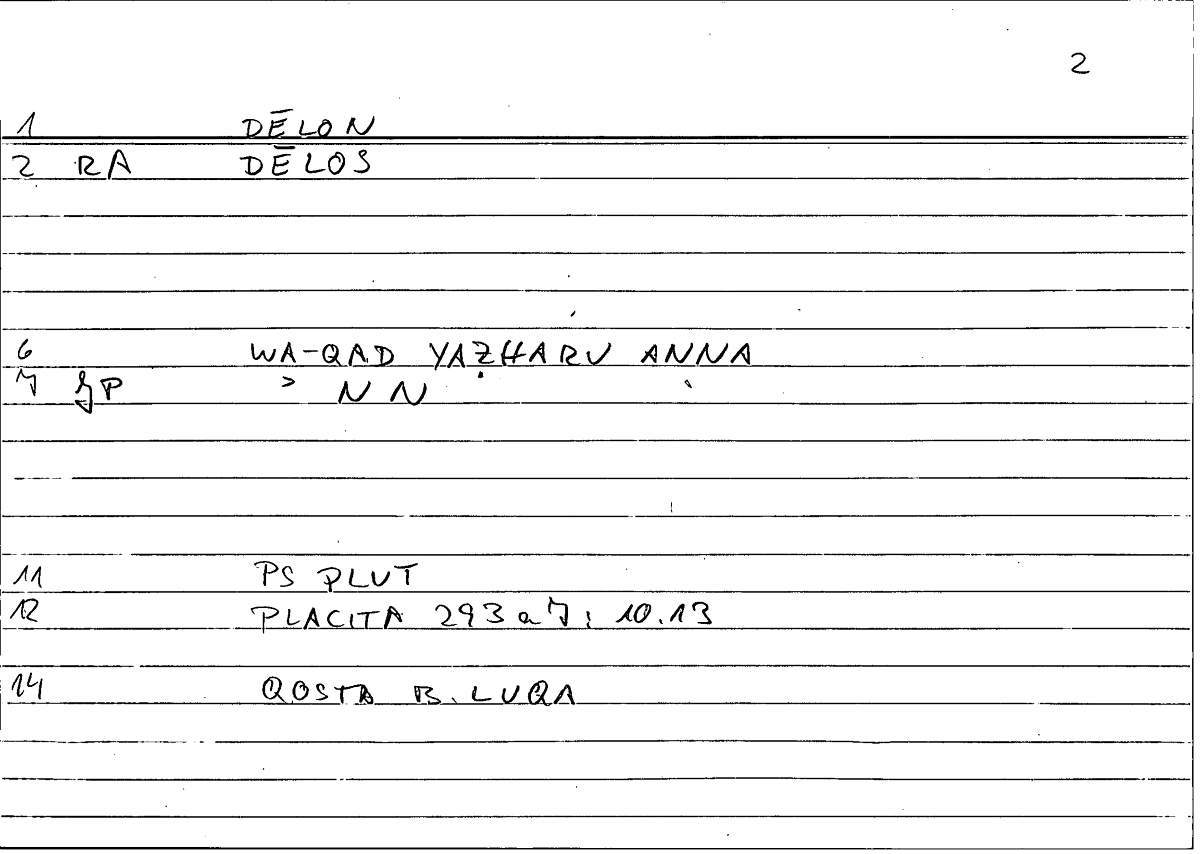 2
1 DĒLON
2 RA DĒLOS
6 WA-QAD YAẒHARU ANNA
7 GP > N N
11 PS PLUT
12 PLACITA 293 a 7; 10.13
14 QOSTA B. LUQA